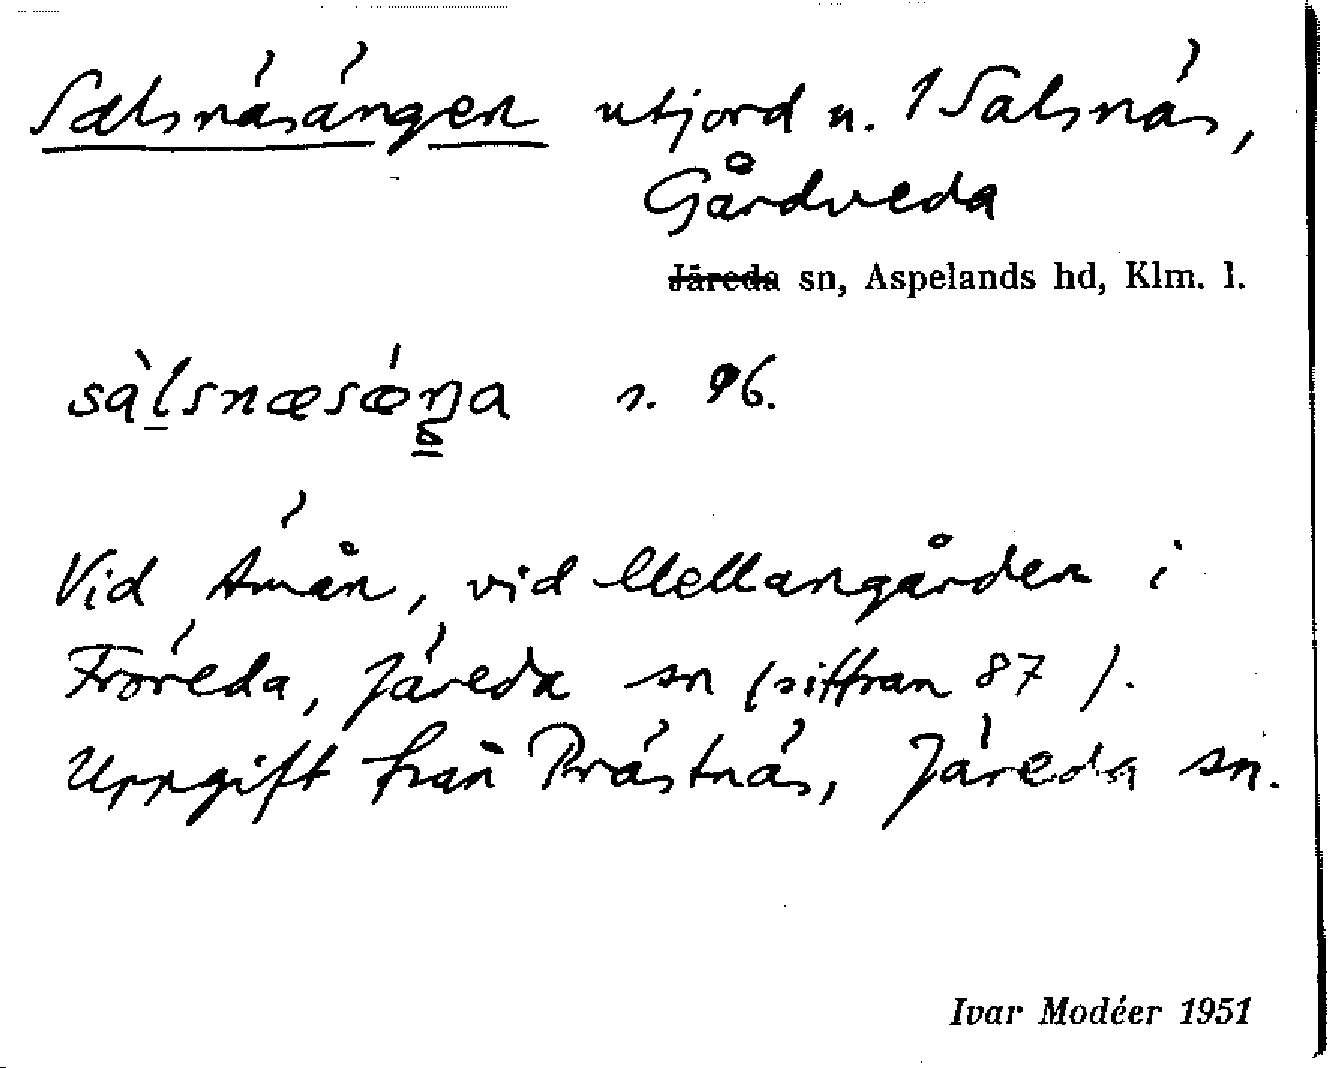 Salsnäsängen utjord u. 1 Salsnäs,
Gårdveda
Järeda sn, Aspelands hd, Klm. l.
sàlsnæsǽŋa s. 96.
Vid Ämån, vid Mellangården i
Fröreda, Järeda sn (siffran 87).
Uppgift från Prästnäs, Järeda sn.
Ivar Modéer 1951